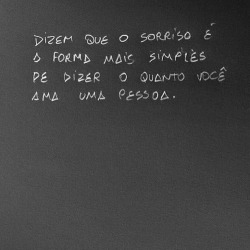 DIZEM QUE O SORRISO É
A FORMA MAIS SIMPLES
DE DIZER O QUANTO VOCÊ
AMA UMA PESSOA.